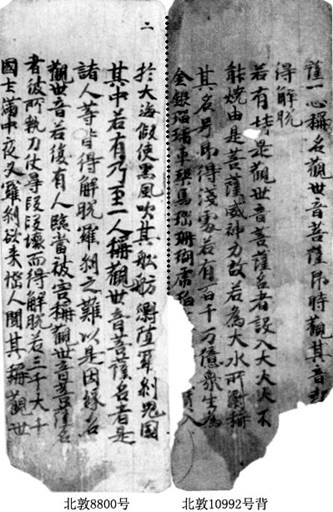 薩一心稱名觀世音菩薩即時觀其音
得解脫
若有持是觀世音菩薩名者設入大火火不
能燒由是菩薩威神力故若為大水所漂稱
其名号即得淺處若有百千万億衆生為
金銀瑠璃車璖馬瑙珊瑚虎珀 寶入
二
於大海假使黑風吹其舡舫漂墮羅剎鬼國
其中若有乃至一人稱觀世音菩薩名者是
諸人等皆得解脫羅剎之難以是因緣名
觀世音若復有人臨當被害稱觀世音菩薩名
者彼所執刀仗尋段段壞而得解脫若三千大千
國土滿中夜叉羅剎欲来惱人聞其稱觀世
北敦8800号
北敦10992号背